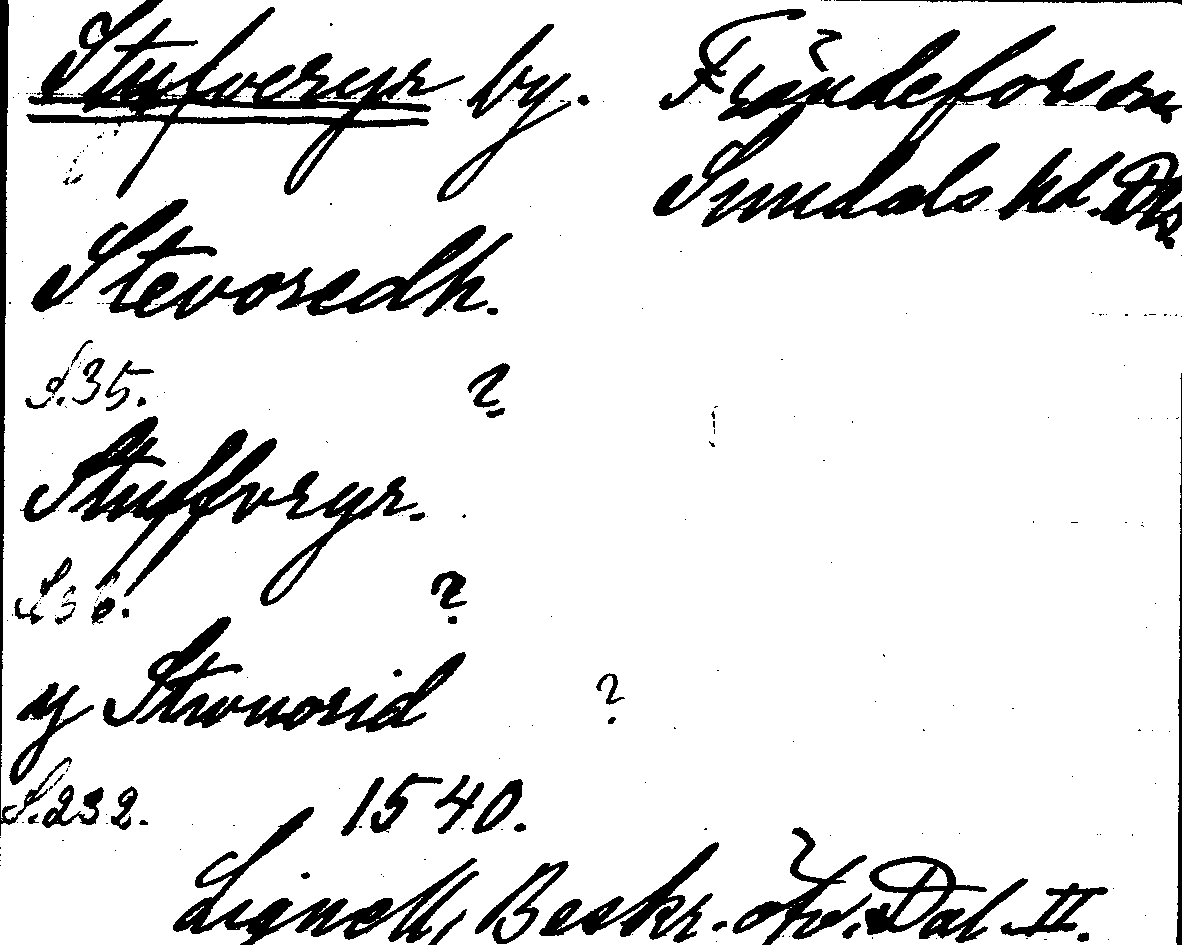 Stufveryr by. Frändeforssn
Sundals hd. Dls.
Stevoredh.
S.35. ?
Stuffvryr.
S.36. ?
y Stwuorid ?
S.232. 1540.
Lignell, Beskr. öfv. Dal. II.